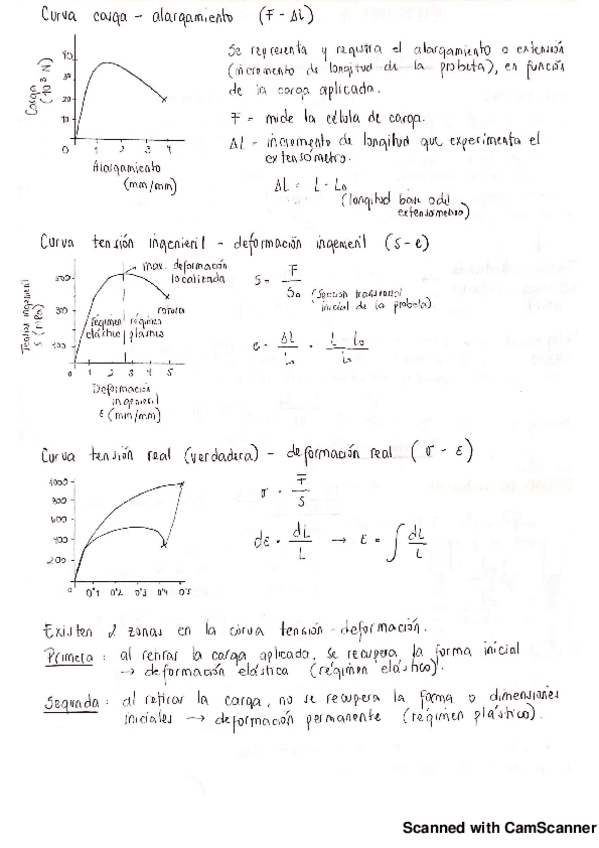 Curva carga - alargamiento (F - ΔL)
Se representa y registra el alargamiento o extensión
(incremento de longitud de la probeta), en función
de la carga aplicada.
F = mide la célula de carga.
ΔL = incremento de longitud que experimenta el
extensómetro.
ΔL = L - L₀
(longitud base o del
extensómetro)
Carga
(10³ N)
40
30
20
10
0 1 2 3 4
Alargamiento
(mm/mm)
Curva tensión ingenieril - deformación ingenieril (s - e)
max. deformación
localizada
rotura
régimen régimen
elástico plástico
Tensión ingenieril
S (MPa)
500
300
100
0 1 2 3 4 5
Deformación
ingenieril
ε (mm/mm)
s = F / S₀ (sección transversal
inicial de la probeta)
e = ΔL / L₀ = L - L₀ / L₀
Curva tensión real (verdadera) - deformación real (σ - ε)
1000
800
600
400
200
0 0'1 0'2 0'3 0'4 0'5
σ = F / S
dε = dL / L → ε = ∫ dL / L
Existen 2 zonas en la curva tensión - deformación.
Primera: al retirar la carga aplicada, se recupera la forma inicial
→ deformación elástica (régimen elástico).
Segunda: al retirar la carga, no se recupera la forma o dimensiones
iniciales → deformación permanente (régimen plástico).
Scanned with CamScanner